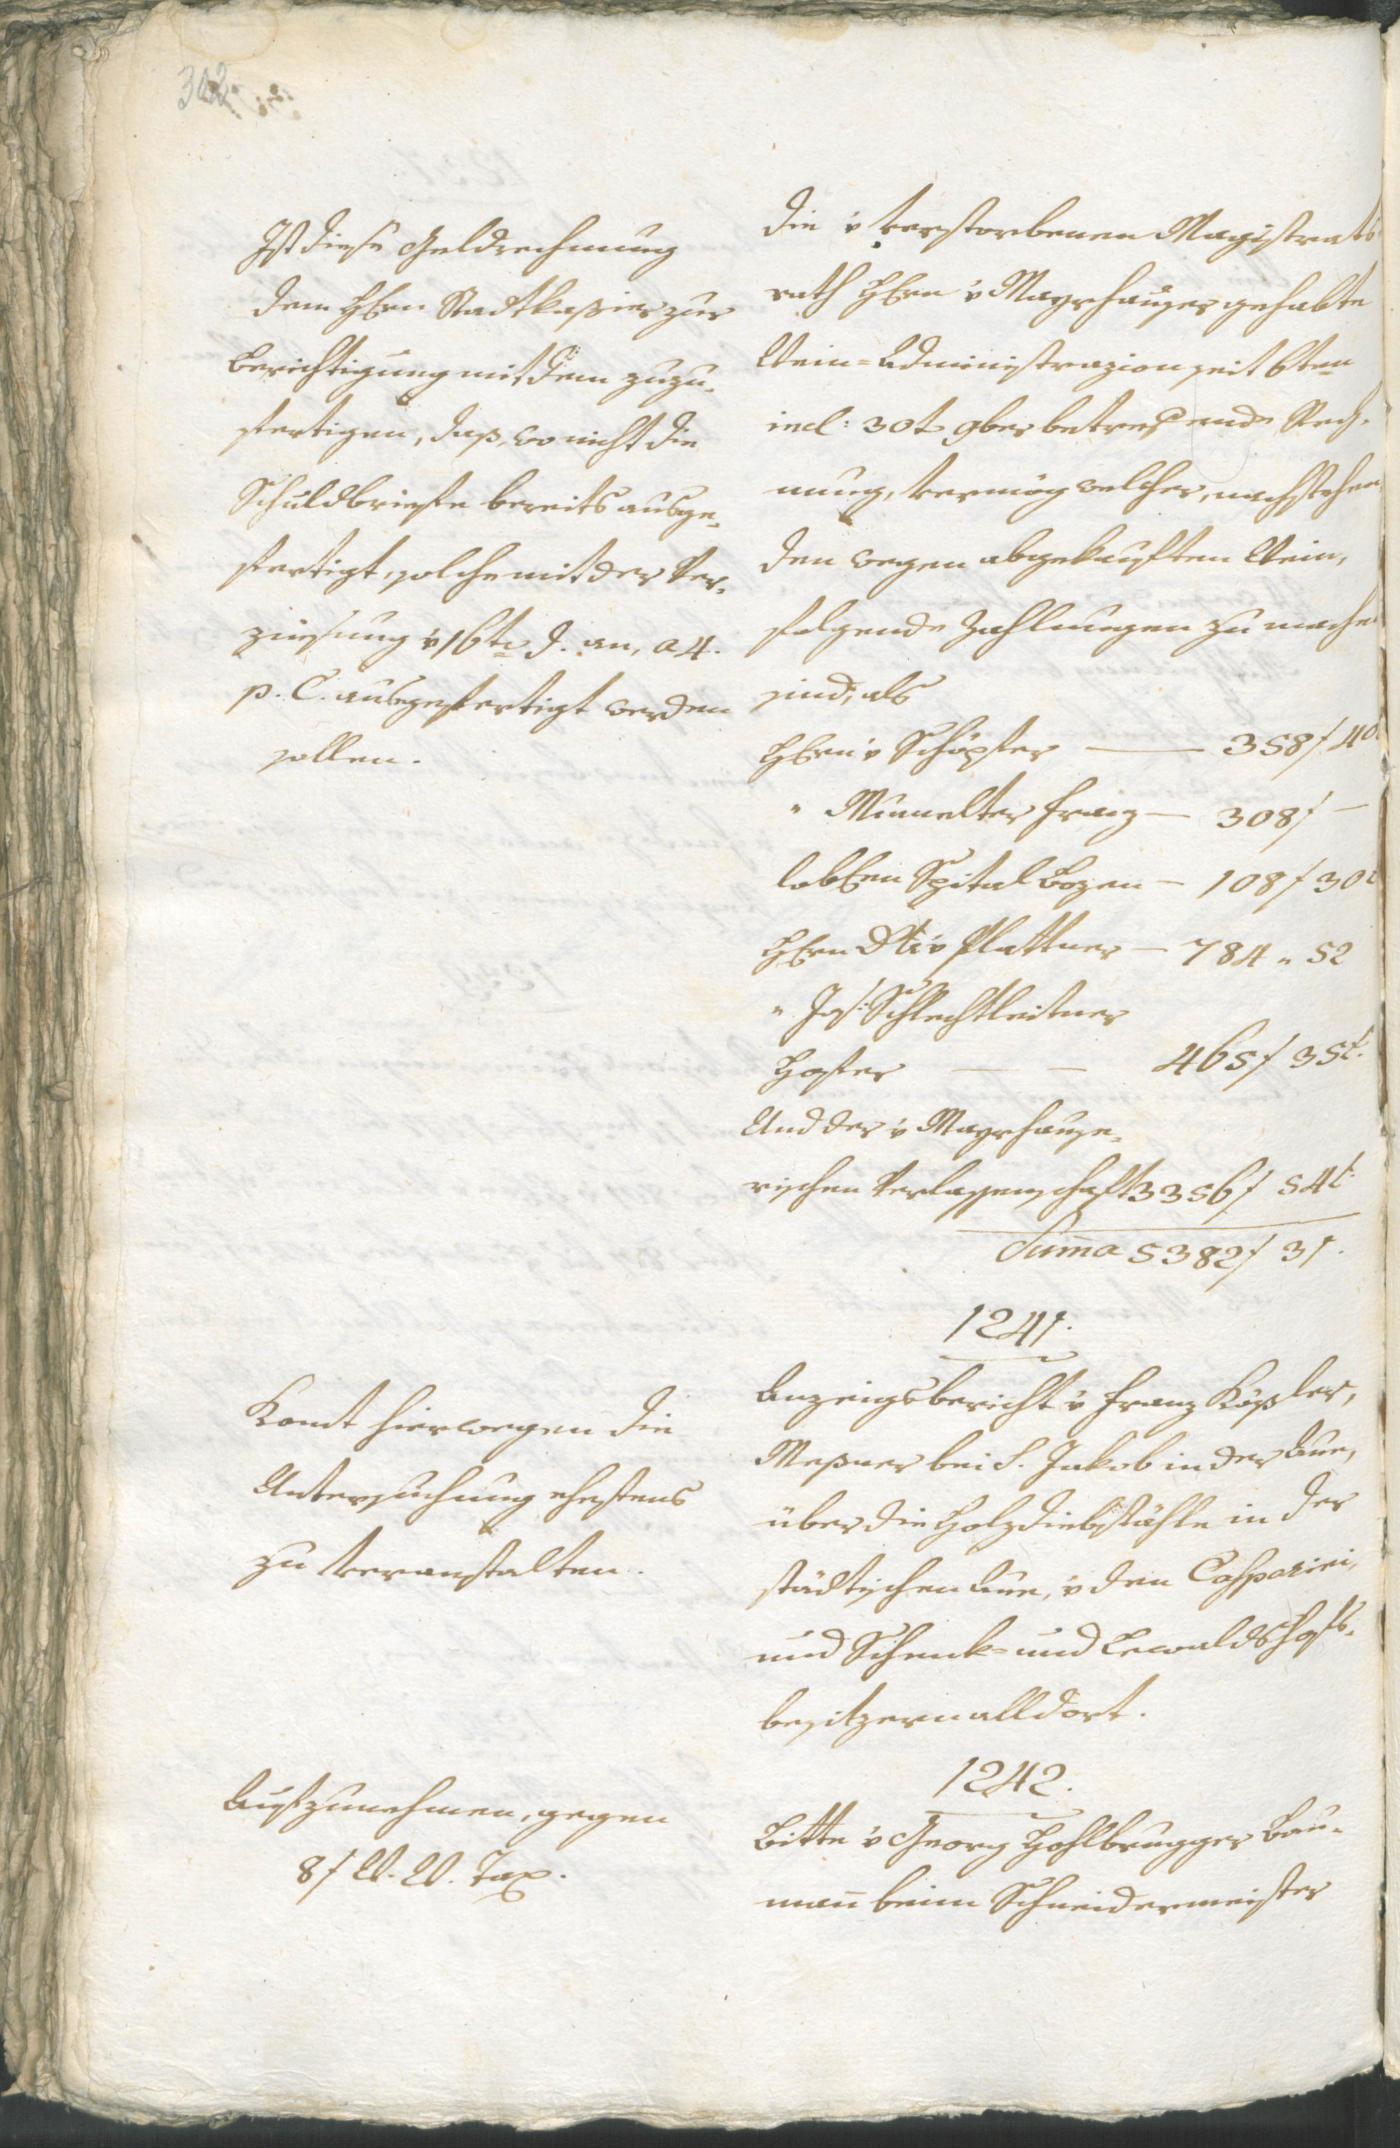 302
Ist diese Geldrechnung
dem Hern Stadtkaßier zur
Berichtigung mit dem zuzu-
fertigen, daß, wo nicht die
Schuldbriefe bereits ausge-
fertigt, solche mit der Ver-
zinsung v 16te d. an, a 4.
p. C. ausgefertigt werden
sollen.
die v verstorbenen Magistrats
rath Hern v Mayrhauser gehabte
Wein-Administrazion seit 6ten
incl: 30t 9ber betreffende Rech-
nung, vermög welcher, nachstehen
den wegen abgekauften Wein,
folgende Zahlungen zu machen
sind, als
Hern v Schöpfer — 358 f 40
" Mumelter Franz — 308 f —
lobEen Spital Bozen — 108 f 30 t
Hern v Plattner — 784 " 52
" Jos: Schlechtleitner
Hofer — — 465 f 35 t.
Und der v Mayrhause-
rischen Verlassenschaft 3356 f 54 t
Suma 5382 f 31.
1241.
Komt hierwegen die
Untersuchung ehestens
zu veranstalten.
Anzeigsbericht v Franz Kößler,
Meßner bei S. Jakob in der Aue,
über die Holzdiebstähle in der
städtischen Aue, v den Caspariei,
und Schenk- und Ewaldshofs-
besitzern alldort.
1242.
Aufzunehmen, gegen
8 f W. W. Tax.
Bitte v Georg Hohlbrugger Bau-
man beim Schneidermeister